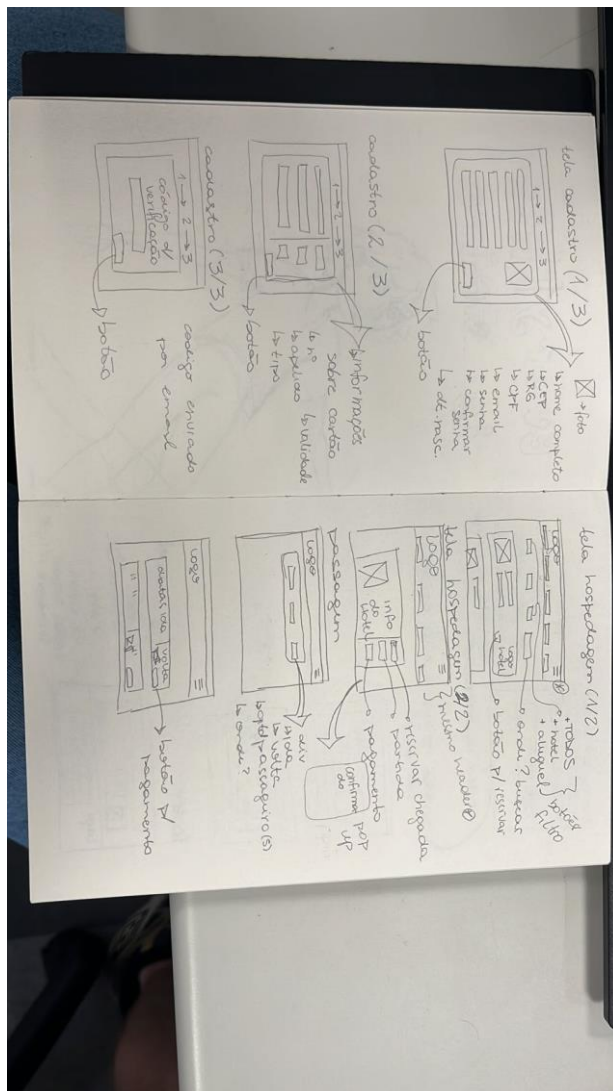 tela cadastro (1/3)
1 → 2 → 3
↳ foto
↳ nome completo
↳ CEP
↳ RG
↳ CPF
↳ email
↳ senha
↳ confirmar
senha
↳ dt. nasc.
botão
cadastro (2/3)
1 → 2 → 3
↳ informações
sobre cartão
↳ nº
↳ validade
↳ apelido
↳ tipo
botão
cadastro (3/3)
1 → 2 → 3
código d/
verificação
código enviado
por email
botão
tela hospedagem (1/2)
logo
logo
hotel
+ TODOS
+ hotel
+ aluguel
botões
filtro
onde? buscar
botão p/ reservar
tela hospedagem (2/2)
logo
mesmo header
info
do
Hotel
reservar chegada
partida
pagamento
confirma
do
pop
up
passagem
logo
div
↳ ida
↳ volta
↳ qtd passageiro(s)
↳ onde?
logo
datas ida
volta
R$
" "
R$
botão p/
pagamento